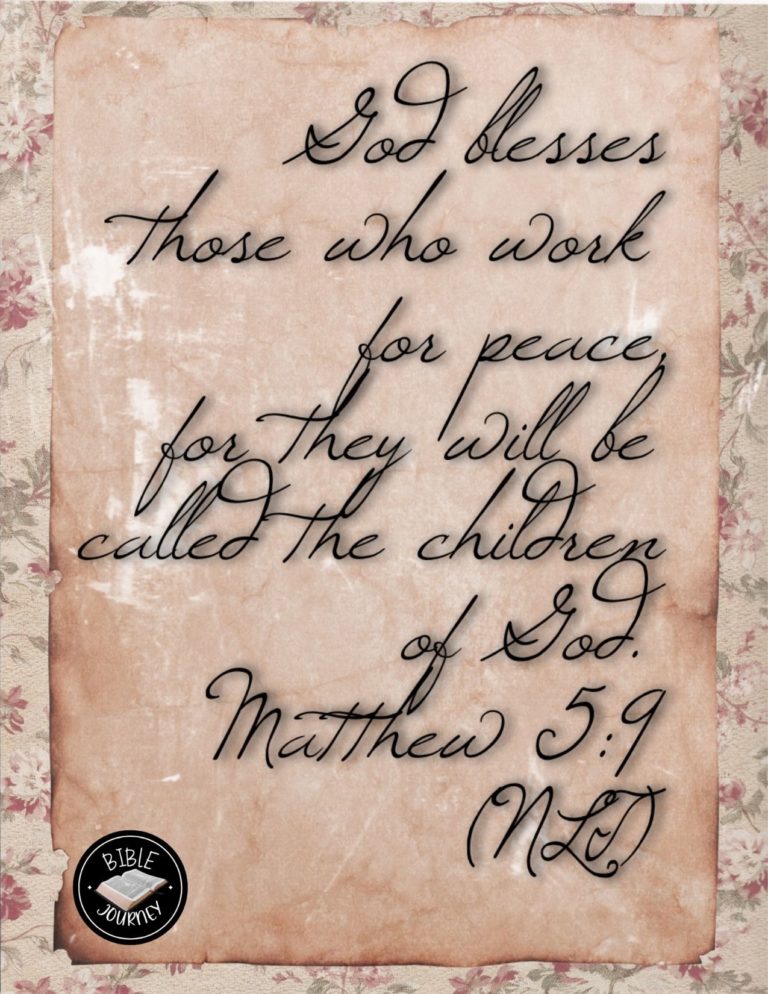 God blesses
those who work
for peace,
for they will be
called the children
of God.
Matthew 5:9
(NLT)
BIBLE
JOURNEY